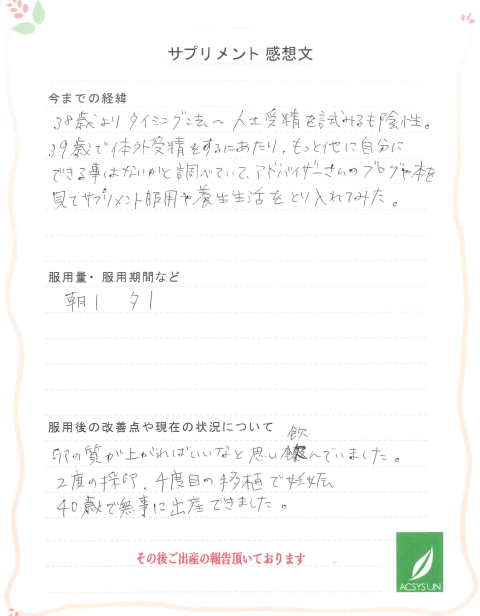 サプリメント感想文
今までの経緯
38歳よりタイミング法〜人工受精を試みるも陰性。
39歳で体外受精をするにあたり、もっと他に自分に
できる事はないかと調べていて、アドバイザーさんのブログや本を
見てサプリメント服用や養生生活をとり入れてみた。
服用量・服用期間など
朝1 夕1
服用後の改善点や現在の状況について
飲
卵の質が上がればいいなと思い飲んでいました。
2度の採卵、4度目の移植で妊娠
40歳で無事に出産できました。
その後ご出産の報告頂いております
ACSYSUN